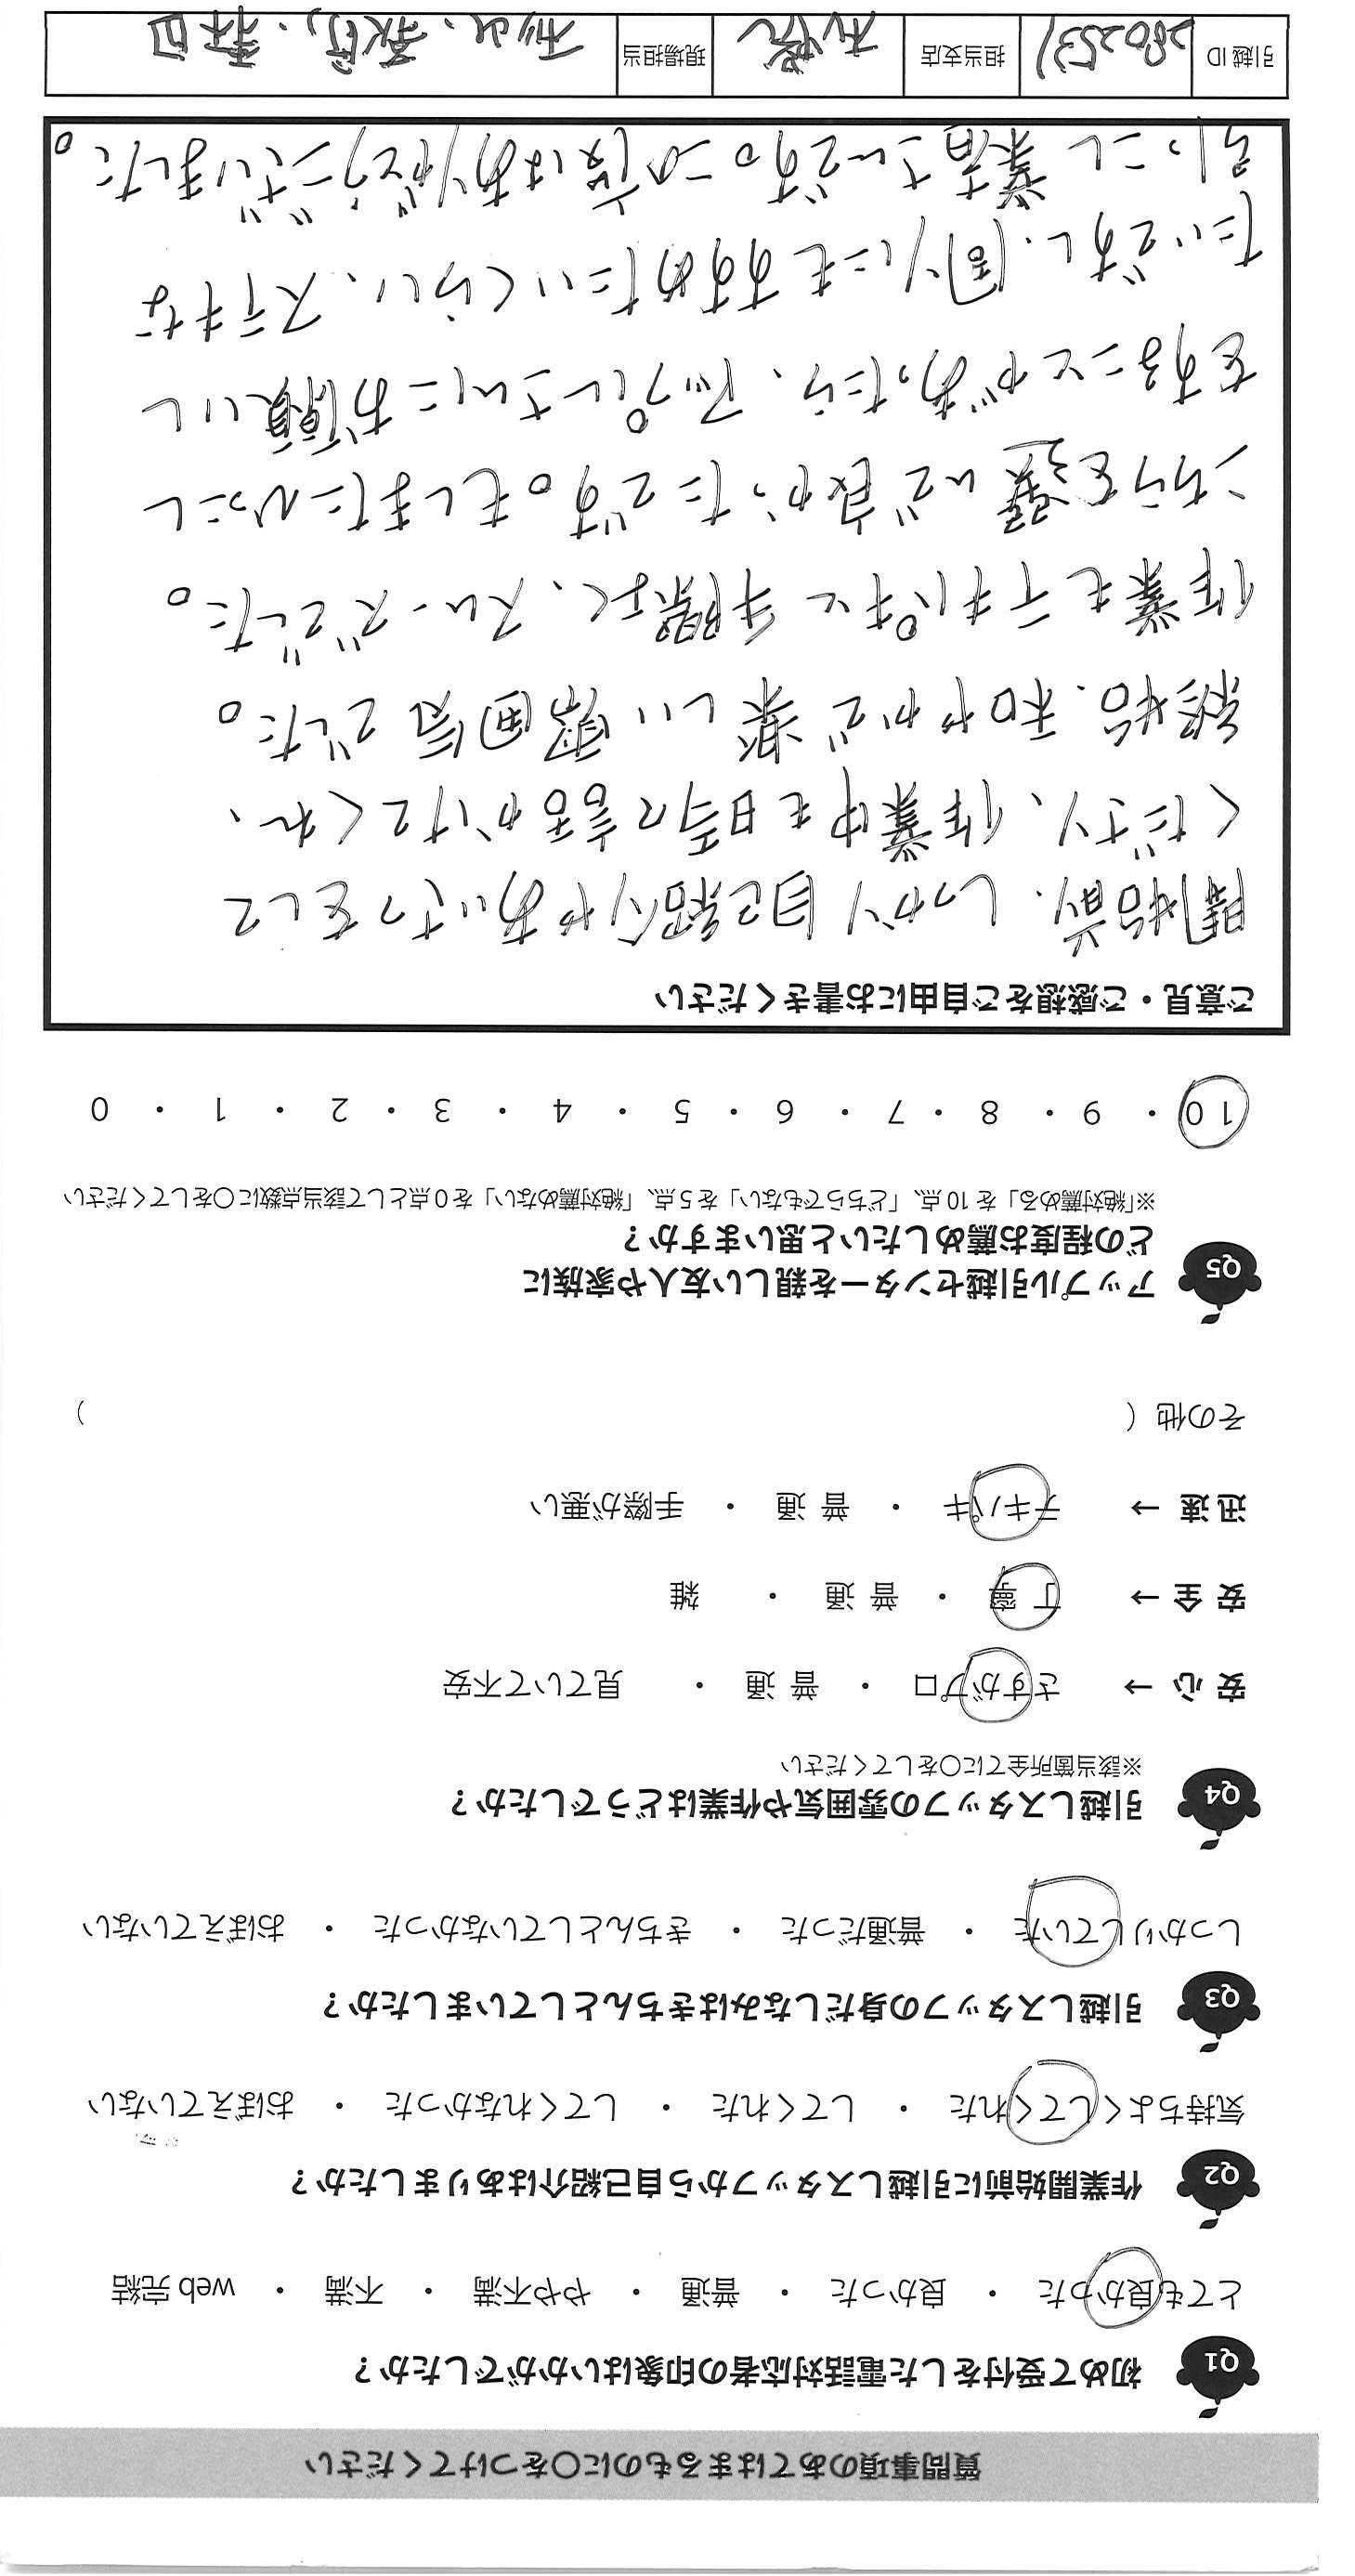 質問事項のあてはまるものに〇をつけてください
Q1 初めて受付をした電話対応者の印象はいかがでしたか？
とても良かった ・ 良かった ・ 普通 ・ やや不満 ・ 不満 ・ web 完結
Q2 作業開始前に引越しスタッフから自己紹介はありましたか？
気持ちよくしてくれた ・ してくれた ・ してくれなかった ・ おぼえていない
Q3 引越しスタッフの身だしなみはきちんとしていましたか？
しっかりしていた ・ 普通だった ・ きちんとしていなかった ・ おぼえていない
Q4 引越しスタッフの雰囲気や作業はどうでしたか？
※該当箇所全てに〇をしてください
安 心 → さすがプロ ・ 普 通 ・ 見ていて不安
安 全 → 丁 寧 ・ 普 通 ・ 雑
迅 速 → テキパキ ・ 普 通 ・ 手際が悪い
その他（ ）
Q5 アップル引越センターを親しい友人や家族に
どの程度お薦めしたいと思いますか？
※「絶対薦める」を 10 点、「どちらでもない」を 5 点、「絶対薦めない」を 0 点として該当点数に〇をしてください
10 ・ 9 ・ 8 ・ 7 ・ 6 ・ 5 ・ 4 ・ 3 ・ 2 ・ 1 ・ 0
ご意見・ご感想をご自由にお書きください
開始前、しっかり自己紹介やあいさつをして
くださり、作業中も時々話かけてくれ、
終始、和やかで楽しい雰囲気でした。
作業もテキパキと手際よく、スムーズでした。
こちらを選んで良かったです。もしまたひっこし
をすることがあったら、アップルさんにお願いし
たいですし、周りにもすすめたいくらい、ステキな
引っこし業者さんです。この度はありがとうございました。
引越 ID 2802531 担当支店 現場担当 秋山、 森田